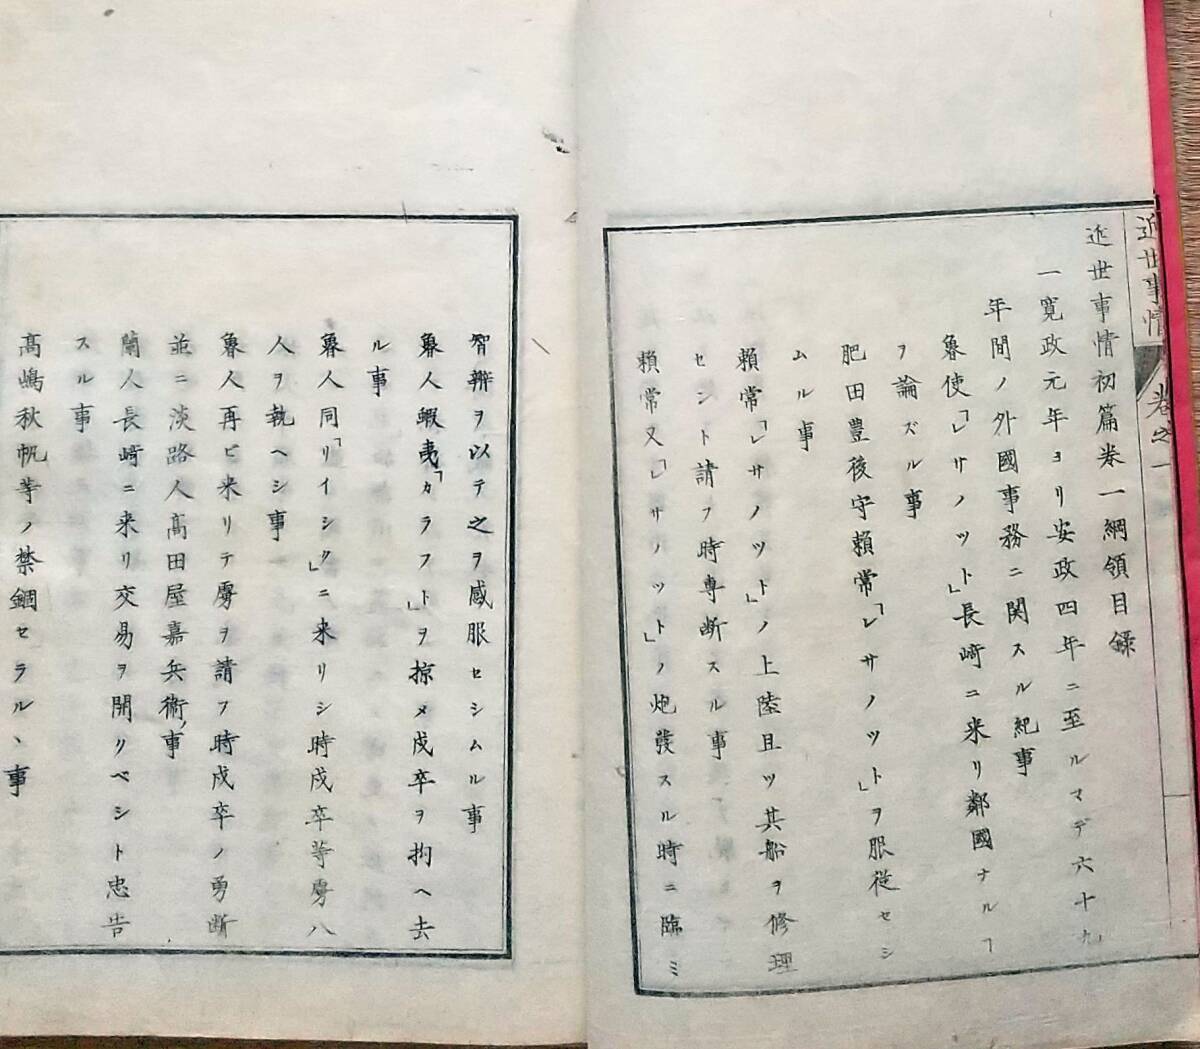 近世事情 卷之一
近世事情初篇卷一綱領目録
一寛政元年ヨリ安政四年ニ至ルマデ六十九
年間ノ外國事務ニ関スル紀事
魯使「レサノット」長崎ニ来リ鄰國ナルヿ
ヲ論ズル事
肥田豊後守頼常「レサノット」ヲ服從セシ
ムル事
頼常「レサノット」ノ上陸且ツ其船ヲ修理
セシト請フ時専断スル事
頼常又「レサノット」ノ炮發スル時ニ臨ミ
智辨ヲ以テ之ヲ感服セシムル事
魯人蝦夷「カラフト」ヲ掠メ戍卒ヲ拘ヘ去
ル事
魯人同「リイシリ」ニ来リシ時戍卒等虜八
人ヲ執ヘシ事
魯人再ビ来リテ虜ヲ請フ時戍卒ノ勇断
並ニ淡路人高田屋嘉兵衛ノ事
蘭人長崎ニ来リ交易ヲ開クベシト忠告
スル事
高嶋秋帆等ノ禁錮セラルヽ事